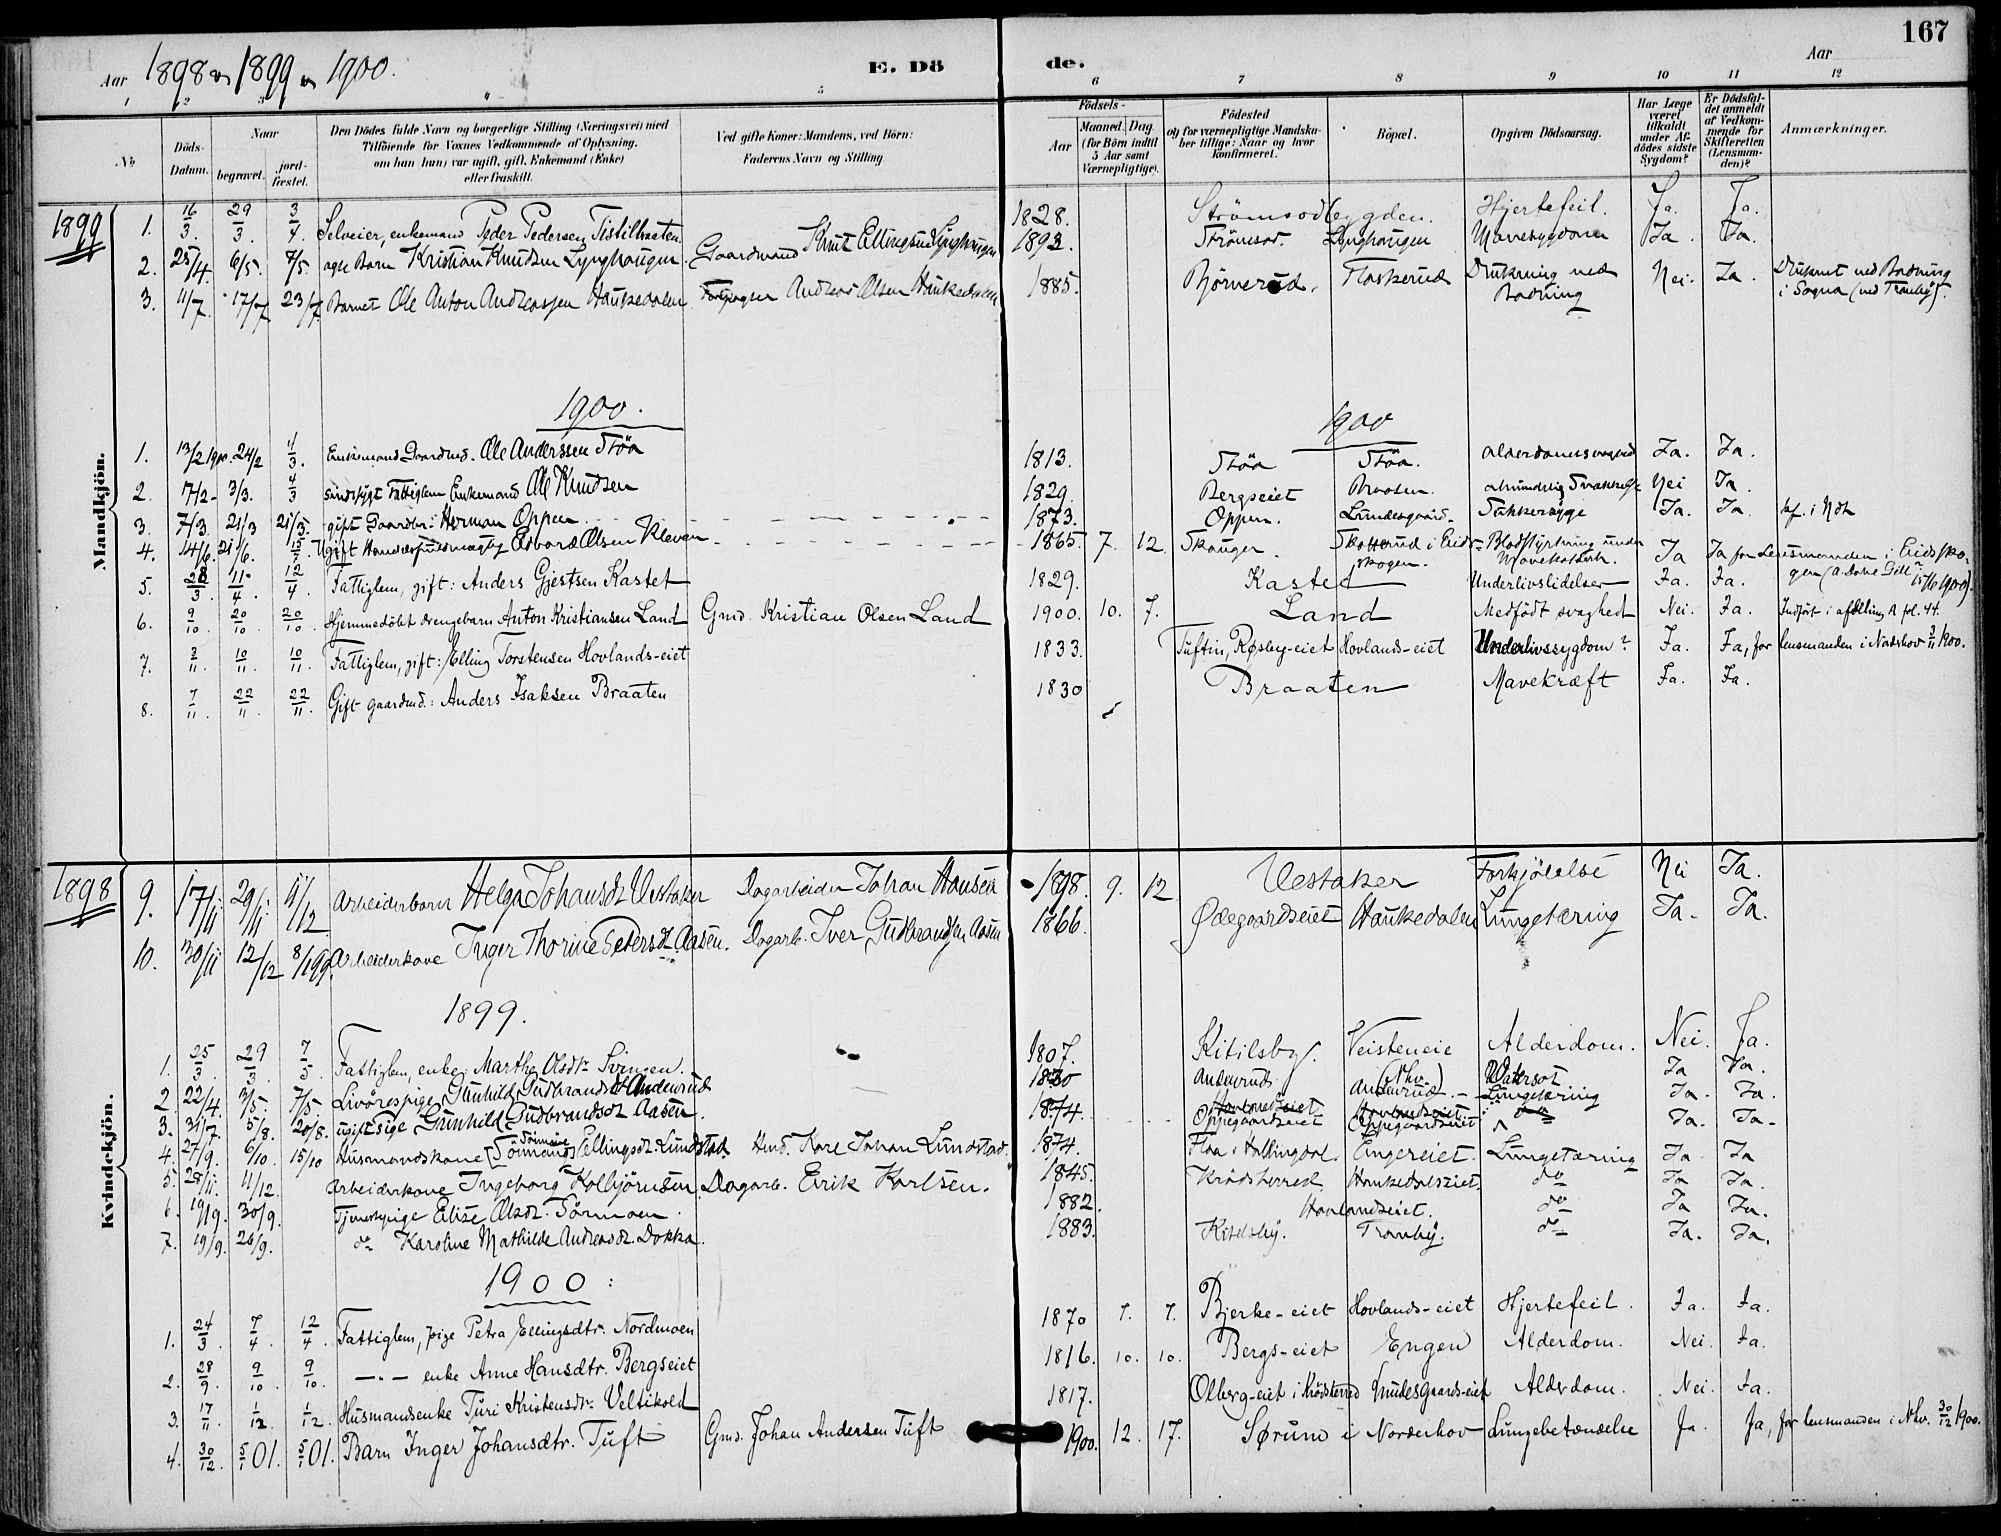 167
Aar 1898 og 1899 og 1900.
E. Dö de.
Aar
1 2 3 4 5 6 7 8 9 10 11 12
No
Döds-Datum.
Naar
begravet.
jord-fæstet.
Den Dödes fulde Navn og borgerlige Stilling (Næringsvei) med Tilföiende for Voxnes Vedkommende af Oplysning. om han (hun) var ugift, gift, Enkemand (Enke) eller fraskilt.
Ved gifte Koner: Mandens, ved Börn: Faderens Navn og Stilling.
Födsels-
Aar
Maaned. Dag
(for Börn indtil 5 Aar samt Værnepligtige).
Födested
og for værnepligtige Mandska-ber tillige: Naar og hvor konfirmeret.
Bopæl.
Opgiven Dödsaarsag.
Har Læge været tilkaldt under Af-dödes sidste Sygdom?
Er Dödsfal-det anmeldt af Vedkom-mende for Skifteretten (Lensman-den)?
Anmærkninger.
Mandkjön.
1899
1. 16/3. 29/3. 3/4. Selveier, enkemand Peder Pedersen Tistilbraaten. 1828. Strömsodbygden. Hjertefeil. Ja. Ja.
2. 25/4. 6/5. 7/5. Kristian Knudsen Lynghaugen. Gaardmand Knut Ellingsen Lynghaugen 1893. Strömsod. Lynghaugen Mavesygdom Ja. Ja.
3. 11/7. 17/7. 23/7. Barnet Ole Anton Andreassen Haukedalen Andreas Olsen Haukedalen 1885. Björnerud. Flaskerud Drukning ved Badning Nei. Ja. Druknet ved Badning
i Sogna (ved Tranby).
1900.
1900
1. 13/2 1900. 24/2 4/3. Enkemand Gaardmd. Ole Anderssen Stöa 1813. Stöa Stöa. Alderdomssvaghed Ja. Ja.
2. 17/2- 3/3. 4/3 Sindssygt Fattiglem Enkemand Ole Knudsen 1829. Bergseiet Braaten. Svækkelse Nei Ja
3. 7/3. 21/3 21/3. gift Gaardbr. Herman Oppen 1873. Oppen. Lundesgaard. Sukkersyge Ja. Ja
4. 14/6. 21/6. 15/7. Ugift Handelsfuldmægtig Edvard Olsen Kleven 1865. 7. 12. Skauger. Skotterud i Eids-skogen. Blodstyrtning under Mavekatarrh. Ja Ja for Lensmanden i Eidsko-
gen
5. 28/3. 11/4. 12/4. Fattiglem, gift: Anders Gjestsen Kastet 1829. Kastet Underlivslidelser Ja. Ja.
6. 9/10. 20/10. 20/10. Hjemmedöbt drengebarn Anton Kristiansen Land Gmd. Kristian Olsen Land 1900. 10. 7. Land Medfödt svaghed Nei. Ja. Indfört i afdeling A fol. 44.
7. 3/11. 10/11. 10/11. Fattiglem, gift: Elling Torstensen Hovlands-eiet 1833. Tuftin, Røsby-eiet Hovlands-eiet Underlivssygdom? Ja. Ja, for lensmanden i Norderhov 3/11 1900.
8. 7/11. 22/11. 22/11. Gift gaardmd.: Anders Isaksen Braaten 1830 Braaten Mavekræft Ja. Ja.
Kvindekjön.
1898
9. 17/11 29/11 11/12 Arbeiderbarn Helga Johansdt. Vestaker Dagarbeider Johan Hansen 1898. 9. 12 Vestaker Forkjölelse Nei Ja.
10. 30/11 12/12 8/1 99. Arbeiderkone Inger Thorine Pedersdt. Aasen. Dagarb. Iver Gudbrandsen Aasen 1866. Ødegaardseiet Haukedalen Lungetæring Ja. Ja.
1899.
1. 25/3. 29/3. 7/5. Fattiglem, enke: Marthe Olsdtr. Svingen. 1807. Kitilsby. Veisteneie Alderdom. Nei. Ja.
2. 22/4. 3/5. 7/5. Livörespige Gunhild Gudbrandsdt. Anderud 1830 Anderud. Anderud. (Nhv.) Vatersot Ja Ja.
3. 31/7. 5/8. 20/8. ugift Pige Gunhild Gudbrandsdt. Aasen. 1874. Hovlandseiet Oppegaardseiet Hovlandseiet Oppegaardseiet Lungetæring Ja. Ja.
4. 27/9. 6/10. 15/10 Husmandskone Ellingsdt. Lundstad. Hmd. Karl Johan Lundstad. 1874. Flaa i Hallingdal. Engereiet. Lungetæring Ja. Ja
5. 28/11. 11/12. Arbeiderkone Ingeborg Kolbjörnsen Dagarb. Erik Karlsen. 1845. Krödsherred Haukedalseiet. do Ja Ja.
6. 19/9. 30/9. Tjenestepige Elise Olsdt. Törmoen. 1882. Hovlandseiet. do Ja Ja.
7. 19/9. 26/9. do Karoline Mathilde Andreasdt. Dokka. 1883. Kitilsby. Tranby. do Ja. Ja.
1900:
1. 24/3. 7/4. 12/4. Fattiglem, pige Petra Ellingsdtr. Nordmoen 1870 7. 7. Bjerke-eiet Hovlands-eiet Hjertefeil. Ja. Ja.
2. 28/9. 9/10. 9/10. —"— enke Anne Hansdtr. Bergseiet 1816. 10. 10. Bergs-eiet Engen Alderdom. Nei. Ja.
3. 17/11. 1/12. 1/12. Husmandsenke Turi Kristensdtr. Veltikold 1817. Olberg-eiet i Krödsherred Gnudesgaards-eiet Alderdom. Nei. Ja.
4. 30/12. 5/1 01. 5/1 01. Barn Inger Johansdtr. Tuft Gmd. Johan Andersen Tuft 1900. 12. 17. Sørum i Norderhov Lungebetændelse Ja. Ja, for lensmanden i Nhv. 30/12 1900.